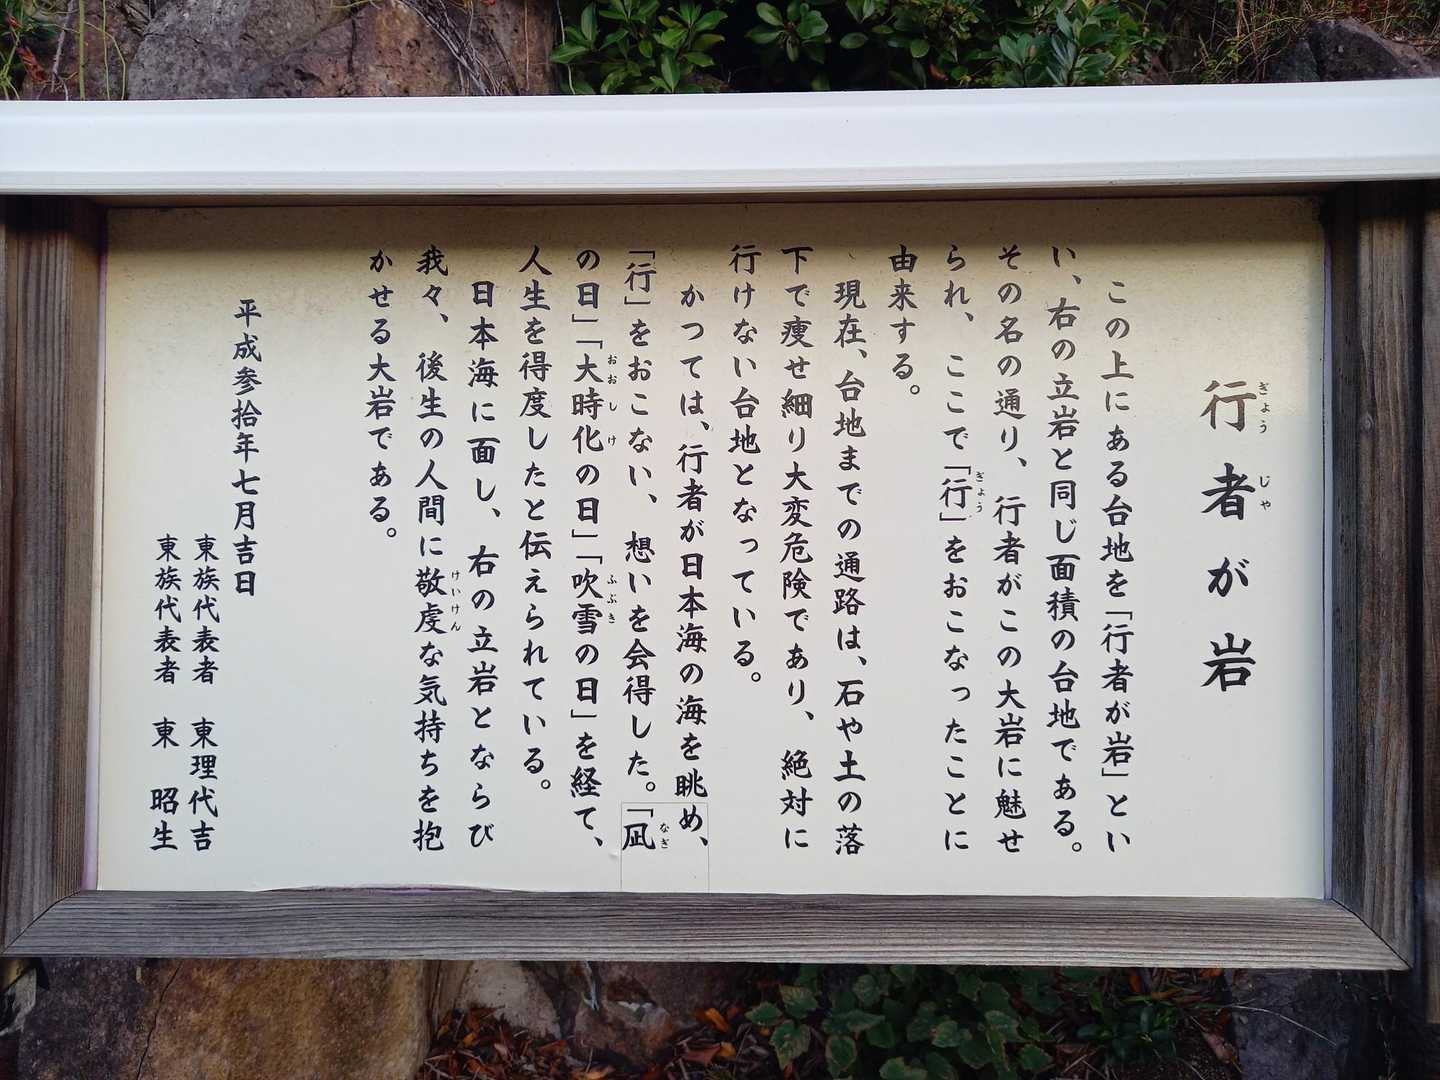 行者が岩
ぎょうじゃ
この上にある台地を「行者が岩」とい
い、右の立岩と同じ面積の台地である。
その名の通り、行者がこの大岩に魅せ
られ、ここで「行」をおこなったことに
ぎょう
由来する。
現在、台地までの通路は、石や土の落
下で痩せ細り大変危険であり、絶対に
行けない台地となっている。
かつては、行者が日本海の海を眺め、
「行」をおこない、想いを会得した。「凪
なぎ
の日」「大時化の日」「吹雪の日」を経て、
おおしけ
ふぶき
人生を得度したと伝えられている。
日本海に面し、右の立岩とならび
我々、後生の人間に敬虔な気持ちを抱
けいけん
かせる大岩である。
平成参拾年七月吉日
東族代表者 東理代吉
東族代表者 東 昭生